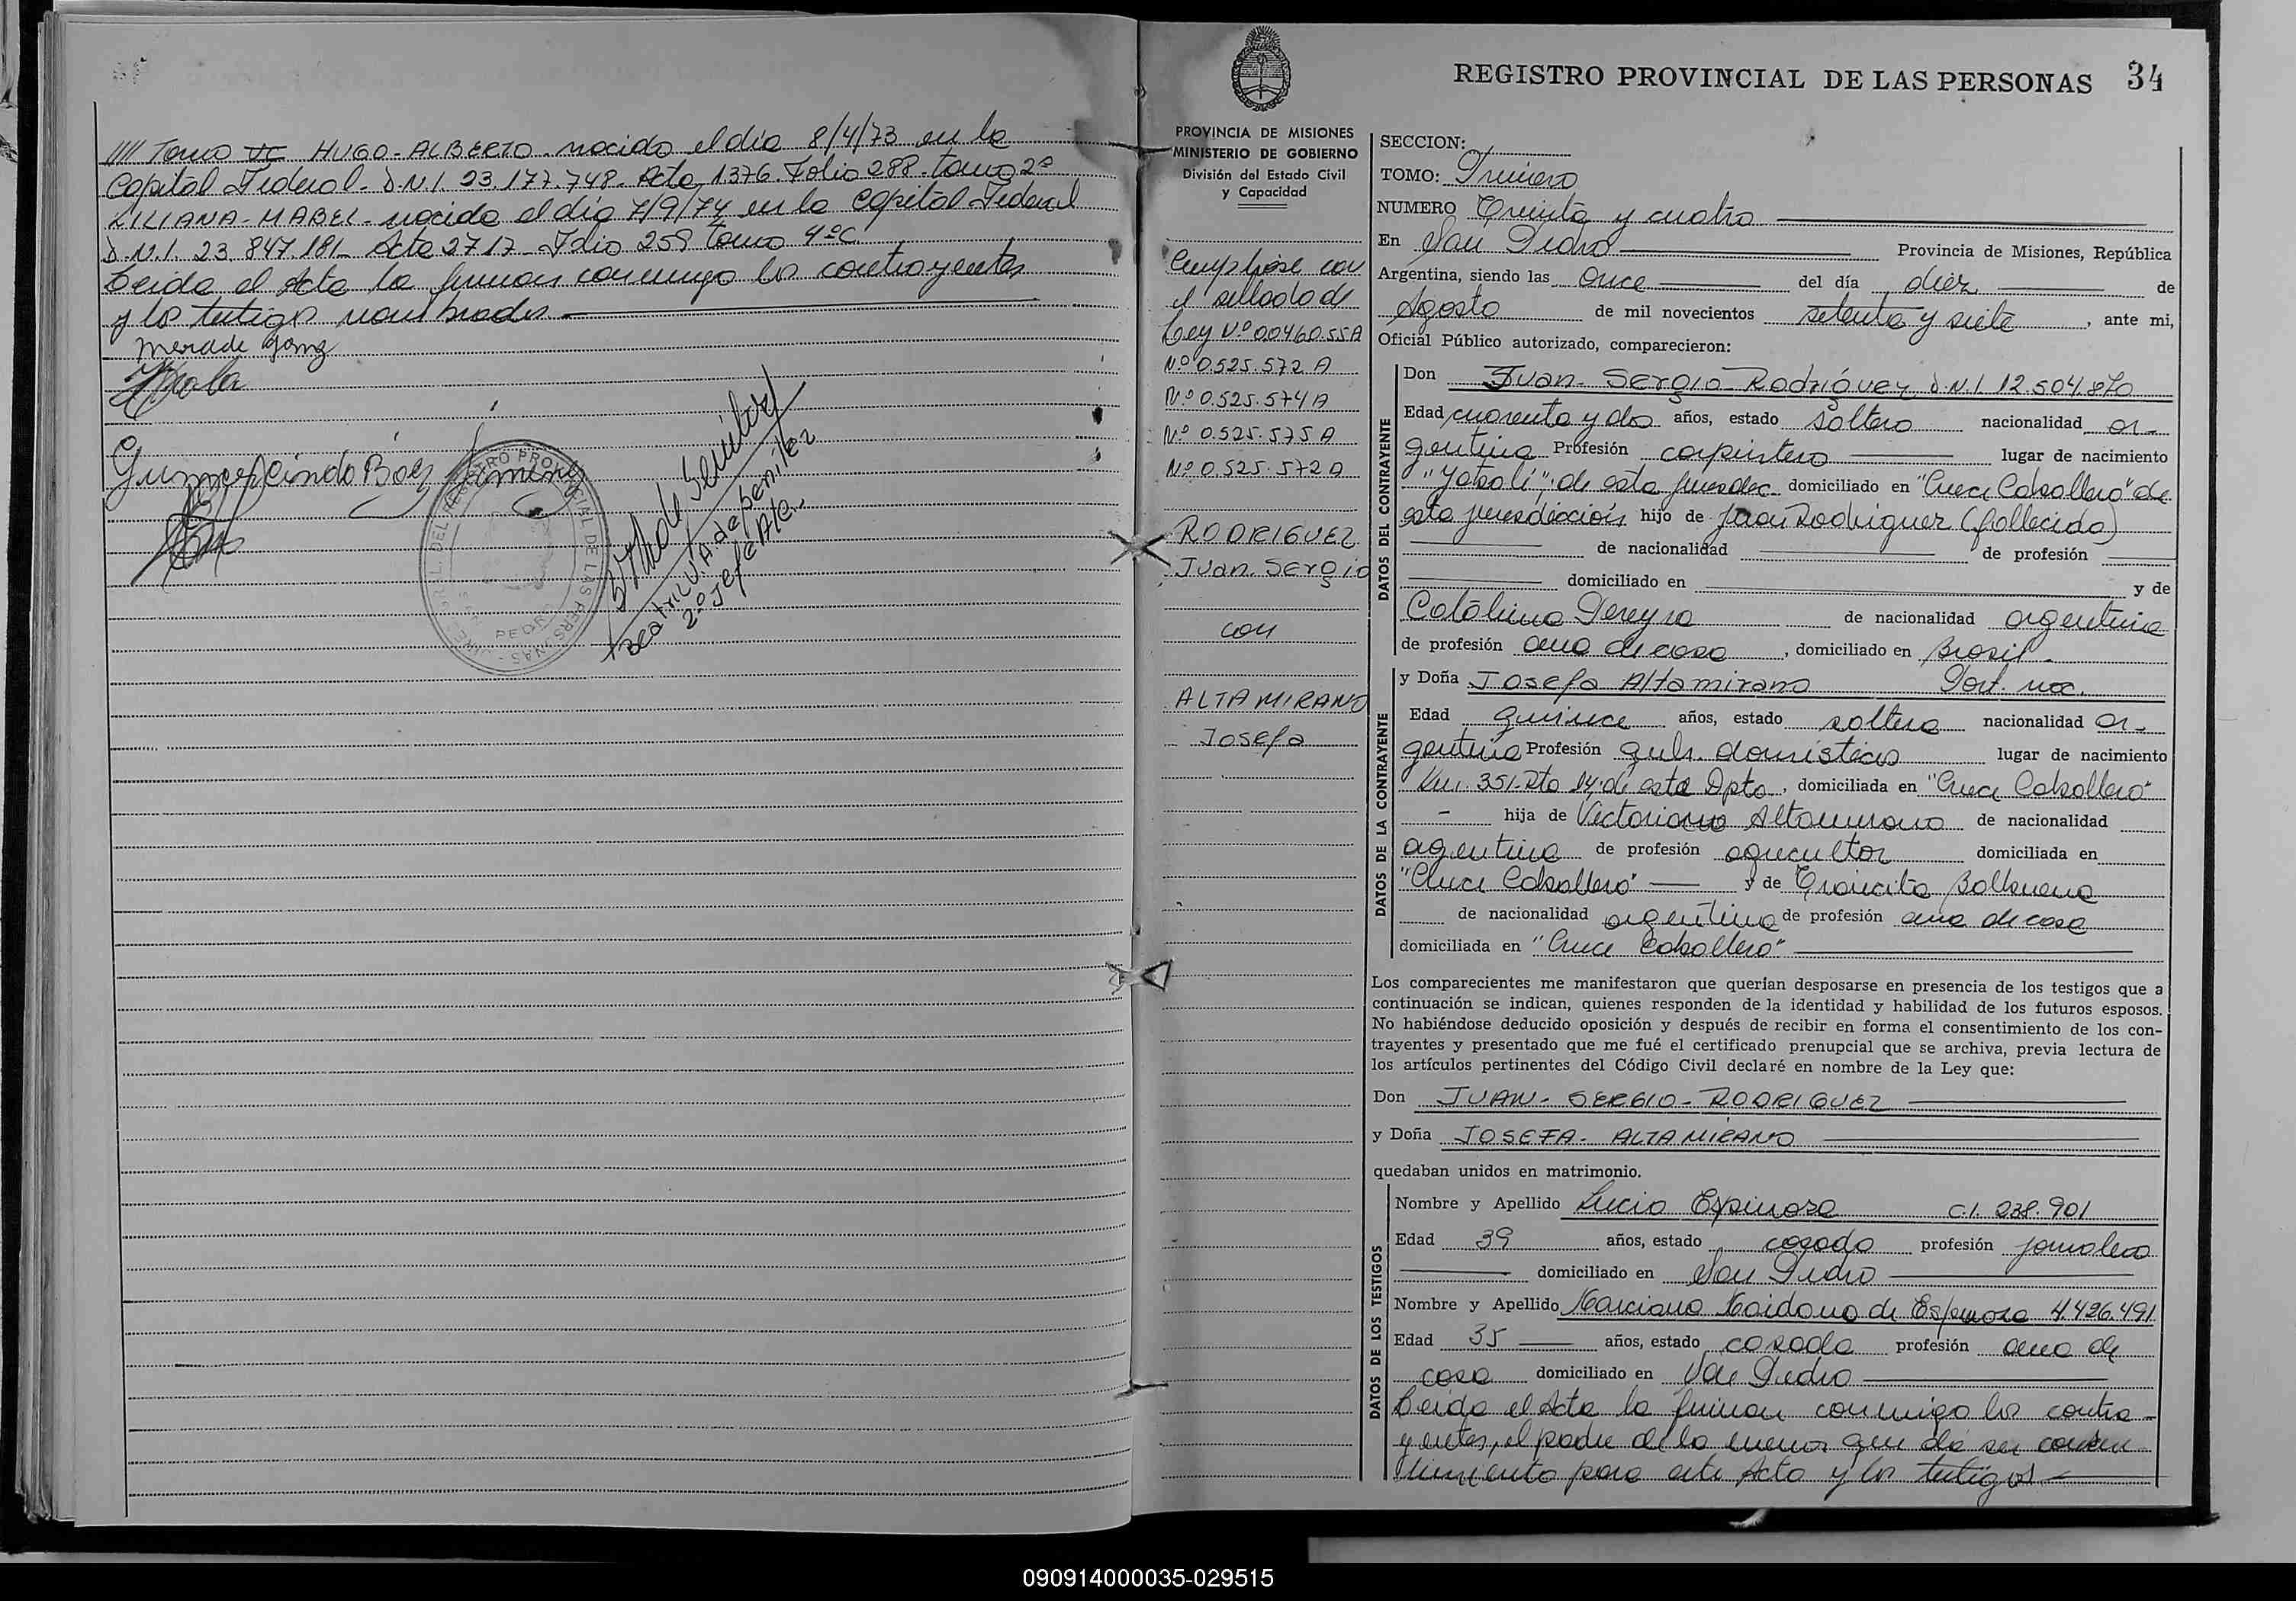 //// Tomo VC HUGO-ALBERTO nacido el día 8/4/73 en la
Capital Federal - D.N.I. 23.177.748 - Acta 1376 - Folio 288 - tomo 2º
LILIANA - MABEL - nacida el día 7/9/74 en la Capital Federal
D.N.I. 23.847.181 - Acta 2717 - Folio 259 tomo 4ºC.
Leida el Acta la firman conmigo los contrayentes
y los testigos nombrados.
Gumercindo Báez Jimenez
Beatriz V. A. de Benitez
2º Jefe
REGISTRO PROVINCIAL DE LAS PERSONAS
SAN PEDRO
REGISTRO PROVINCIAL DE LAS PERSONAS 34
PROVINCIA DE MISIONES
MINISTERIO DE GOBIERNO
División del Estado Civil
y Capacidad
Cumplióse con
el sellado de
Ley Nº 00460.55A
Nº 0.525.572 A
Nº 0.525.574 A
Nº 0.525.575 A
Nº 0.525.572 A
RODRIGUEZ
Juan. Sergio
con
ALTAMIRANO
Josefa
SECCION:
TOMO: Primero
NUMERO Treinta y cuatro
En San Pedro Provincia de Misiones, República
Argentina, siendo las once del día diez de
Agosto de mil novecientos setenta y siete, ante mi,
Oficial Público autorizado, comparecieron:
DATOS DEL CONTRAYENTE
Don Juan - Sergio - Rodríguez D.N.I. 12.504.870
Edad cuarenta y dos años, estado soltero nacionalidad ar-
gentina Profesión carpintero lugar de nacimiento
"Yabotí", de esta jurisdic. domiciliado en "Cruce Caballero" de
esta jurisdicción hijo de Juan Rodriguez (fallecido)
de nacionalidad de profesión
domiciliado en y de
Catalina Pereyra de nacionalidad argentina
de profesión ama de casa, domiciliado en Brasil.
DATOS DE LA CONTRAYENTE
y Doña Josefa Altamirano Part. nac.
Edad quince años, estado soltera nacionalidad ar-
gentina Profesión queh. domésticos lugar de nacimiento
Km. 351-Rta 14, de este Dpto, domiciliada en "Cruce Caballero"
- hija de Victoriano Altamirano de nacionalidad
argentina de profesión agricultor domiciliada en
"Cruce Caballero" y de Trancita
de nacionalidad argentina de profesión ama de casa
domiciliada en "Cruce Caballero"
Los comparecientes me manifestaron que querían desposarse en presencia de los testigos que a
continuación se indican, quienes responden de la identidad y habilidad de los futuros esposos.
No habiéndose deducido oposición y después de recibir en forma el consentimiento de los con-
trayentes y presentado que me fué el certificado prenupcial que se archiva, previa lectura de
los artículos pertinentes del Código Civil declaré en nombre de la Ley que:
Don JUAN - SERGIO - RODRIGUEZ
y Doña JOSEFA - ALTAMIRANO
quedaban unidos en matrimonio.
DATOS DE LOS TESTIGOS
Nombre y Apellido Lucio Espinosa C.I. 238.901
Edad 39 años, estado casado profesión jornalero
domiciliado en San Pedro
Nombre y Apellido Marciana Maidana de Espinosa 4.426.491
Edad 35 años, estado casada profesión ama de
casa domiciliado en San Pedro
Leida el Acta la firman conmigo los contra-
yentes, el padre de la menor que dá su consen
timiento para este Acto y los testigos
090914000035-029515